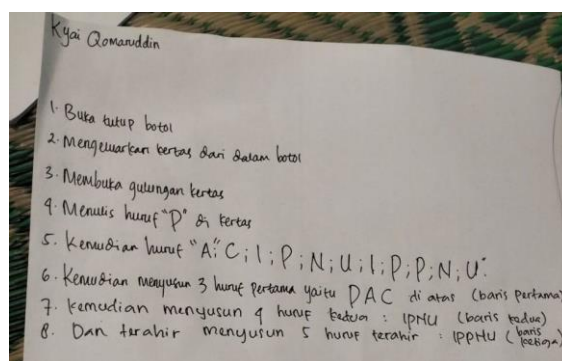 Kyai Qomaruddin
1. Buka tutup botol
2. Mengeluarkan kertas dari dalam botol
3. Membuka gulungan kertas
4. Menulis huruf "P" di kertas
5. Kemudian huruf "A; C; I; P; N; U; I; P; P; N; U".
6. Kemudian menyusun 3 huruf pertama yaitu DAC di atas (baris pertama)
7. kemudian menyusun 4 huruf kedua : IPNU (baris kedua)
8. Dan terahir menyusun 5 huruf terahir : IPPNU (baris ketiga)